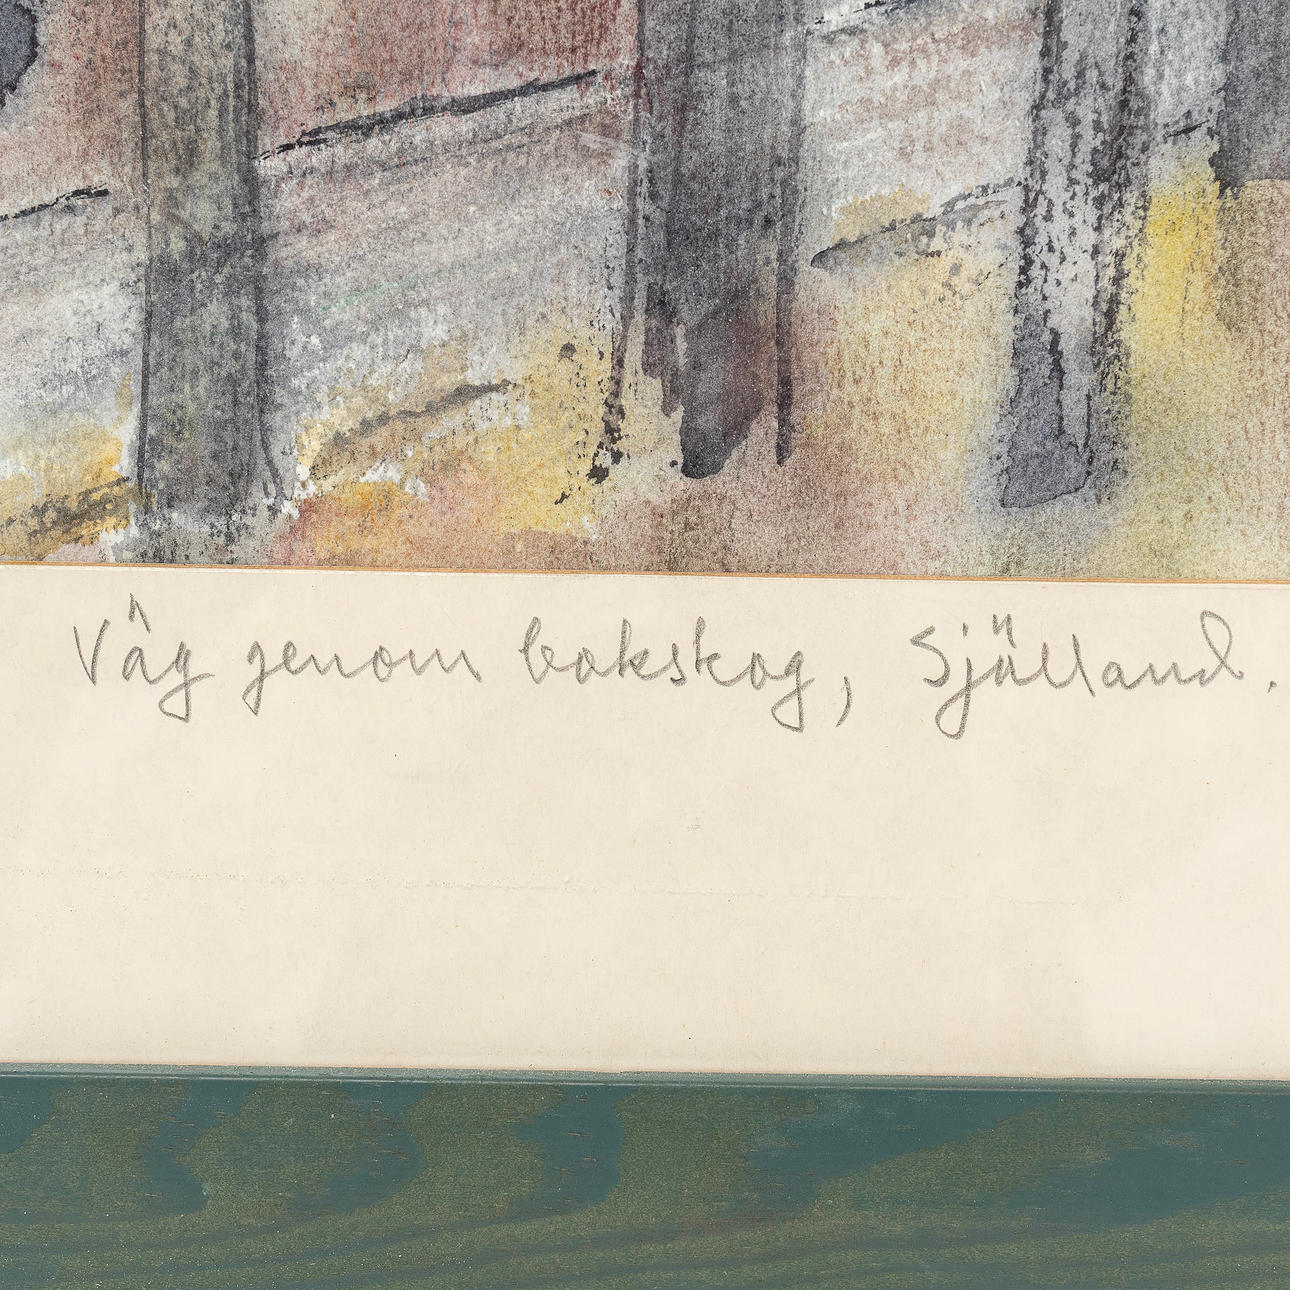 Väg genom bokskog, Själland.